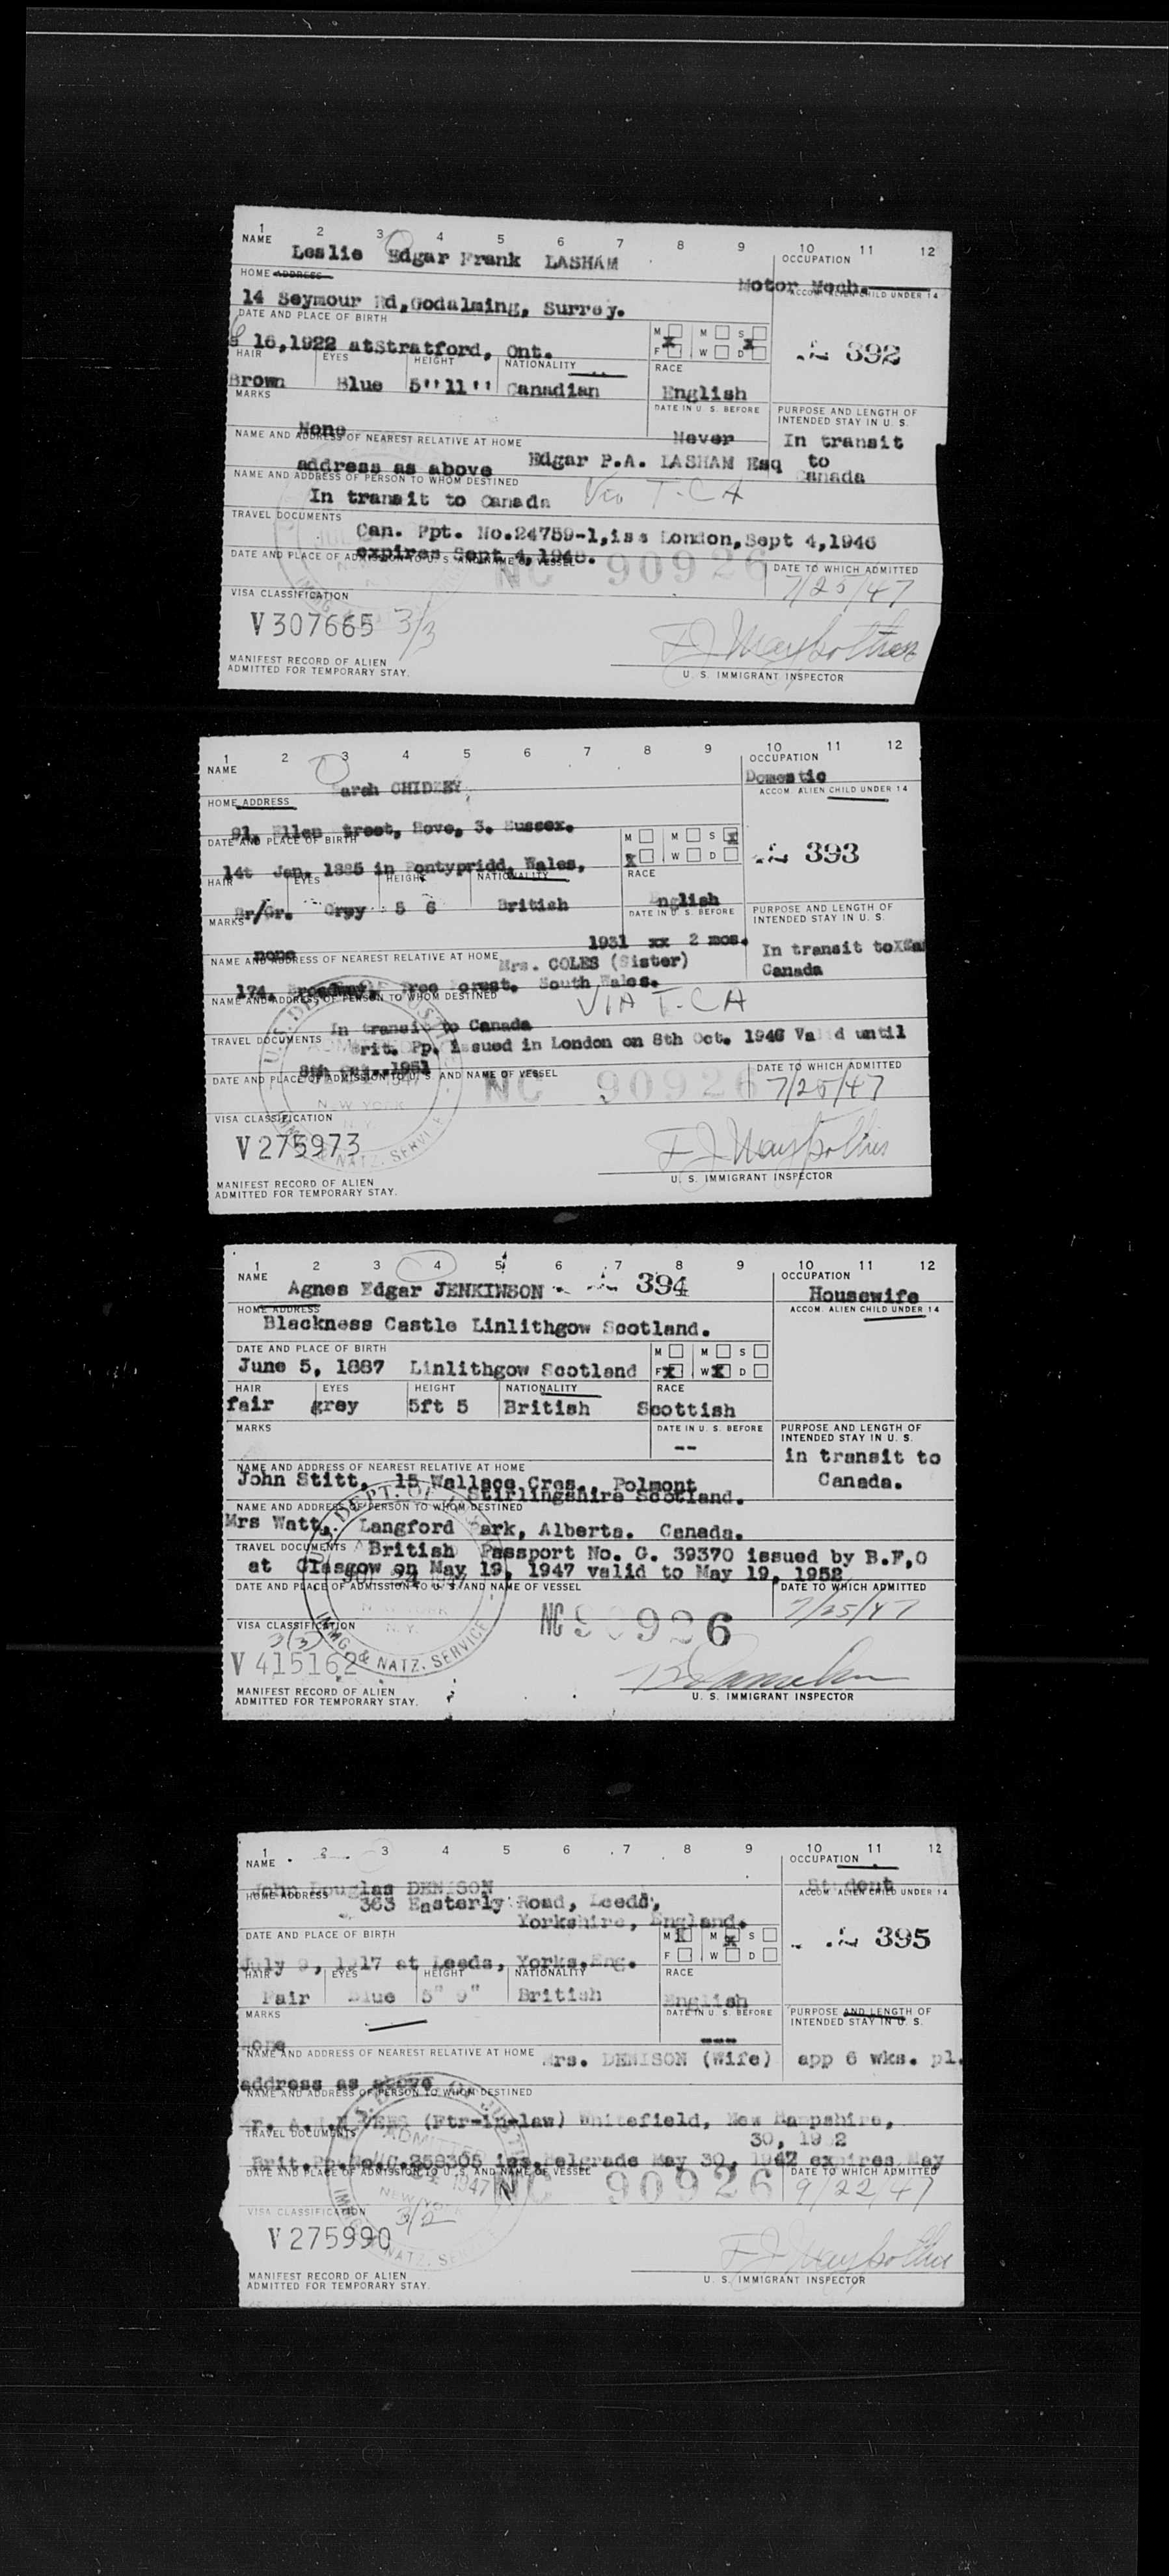 1 2 3 4 5 6 7 8 9 10 11 12
NAME OCCUPATION
Leslie Edgar Frank LASHAM
HOME ADDRESS Motor Mech.
ACCOM. ALIEN CHILD UNDER 14
14 Seymour Rd, Godalming, Surrey.
DATE AND PLACE OF BIRTH M M S
16,1922 atStratford, Ont. X X F W D 392
HAIR EYES HEIGHT NATIONALITY RACE
Brown Blue 5''11'' Canadian English
MARKS DATE IN U. S. BEFORE PURPOSE AND LENGTH OF
INTENDED STAY IN U. S.
None Never In transit
NAME AND ADDRESS OF NEAREST RELATIVE AT HOME
address as above Edgar P.A. LASHAM Esq to
Canada
NAME AND ADDRESS OF PERSON TO WHOM DESTINED
In transit to Canada Via T.C A
TRAVEL DOCUMENTS
Can. Ppt. No.24759-1,iss London,Sept 4,1946
expires Sept 4,1948.
DATE AND PLACE OF ADMISSION TO U. S. AND NAME OF VESSEL NC 90926 DATE TO WHICH ADMITTED
7/25/47
VISA CLASSIFICATION
V307665 3/3
MANIFEST RECORD OF ALIEN
ADMITTED FOR TEMPORARY STAY. U. S. IMMIGRANT INSPECTOR
1 2 3 4 5 6 7 8 9 10 11 12
NAME OCCUPATION
arah CHIDZEY Domestic
HOME ADDRESS ACCOM. ALIEN CHILD UNDER 14
91, Ellen treet, Hove, 3. Sussex.
DATE AND PLACE OF BIRTH M M S X
14t Jan. 1885 in Pontypridd, Wales, X F W D 393
HAIR EYES HEIGHT NATIONALITY RACE
Br/Gr. Grey 5 6 British English
MARKS DATE IN U. S. BEFORE PURPOSE AND LENGTH OF
INTENDED STAY IN U. S.
none 1931 xx 2 mos. In transit to
NAME AND ADDRESS OF NEAREST RELATIVE AT HOME Mrs. COLES (Sister) Canada
174, Broadway, Tree orest. South Wales.
NAME AND ADDRESS OF PERSON TO WHOM DESTINED VIA T.C A
In transit to Canada
TRAVEL DOCUMENTS Brit. Pp. issued in London on 8th Oct. 1946 Va d until
8th Oct. 1951
DATE AND PLACE OF ADMISSION TO U. S. AND NAME OF VESSEL NC 90926 DATE TO WHICH ADMITTED
7/25/47
VISA CLASSIFICATION
V275973
MANIFEST RECORD OF ALIEN
ADMITTED FOR TEMPORARY STAY. U. S. IMMIGRANT INSPECTOR
1 2 3 4 5 6 7 8 9 10 11 12
NAME OCCUPATION
Agnes Edgar JENKINSON 394 Housewife
HOME ADDRESS ACCOM. ALIEN CHILD UNDER 14
Blackness Castle Linlithgow Scotland.
DATE AND PLACE OF BIRTH M M S
June 5, 1887 Linlithgow Scotland F X W X D
HAIR EYES HEIGHT NATIONALITY RACE
fair grey 5ft 5 British Scottish
MARKS DATE IN U. S. BEFORE PURPOSE AND LENGTH OF
INTENDED STAY IN U. S.
-- in transit to
NAME AND ADDRESS OF NEAREST RELATIVE AT HOME Canada.
John Stitt, 15 Wallace Cres. Polmont
Stirlingshire Scotland.
NAME AND ADDRESS OF PERSON TO WHOM DESTINED
Mrs Watt, Langford Park, Alberta. Canada.
TRAVEL DOCUMENTS British Passport No. G. 39370 issued by B.F,O
at Glasgow on May 19, 1947 valid to May 19, 1952
DATE AND PLACE OF ADMISSION TO U. S. AND NAME OF VESSEL DATE TO WHICH ADMITTED
NC 90926 7/25/47
VISA CLASSIFICATION
3(3)
V415162
IMMG & NATZ. SERVICE
MANIFEST RECORD OF ALIEN
ADMITTED FOR TEMPORARY STAY. U. S. IMMIGRANT INSPECTOR
1 2 3 4 5 6 7 8 9 10 11 12
NAME OCCUPATION
John Douglas DENISON Student
HOME ADDRESS ACCOM. ALIEN CHILD UNDER 14
363 Easterly Road, Leeds,
Yorkshire, England.
DATE AND PLACE OF BIRTH M X M X S
July 9, 1917 at Leeds, Yorks.Eng. F W D 395
HAIR EYES HEIGHT NATIONALITY RACE
Fair Blue 5" 9" British English
MARKS DATE IN U. S. BEFORE PURPOSE AND LENGTH OF
INTENDED STAY IN U. S.
None ---
NAME AND ADDRESS OF NEAREST RELATIVE AT HOME Mrs. DENISON (Wife) app 6 wks. pl.
address as above
NAME AND ADDRESS OF PERSON TO WHOM DESTINED
(Ftr-in-law) Whitefield, New Hampshire,
TRAVEL DOCUMENTS 30, 19 2
Brit.Pp.No. C.259305 iss. Belgrade May 30, 1947 expires May
DATE AND PLACE OF ADMISSION TO U. S. AND NAME OF VESSEL NC 90926 DATE TO WHICH ADMITTED
9/22/47
VISA CLASSIFICATION 3/2
V275990
MANIFEST RECORD OF ALIEN
ADMITTED FOR TEMPORARY STAY. U. S. IMMIGRANT INSPECTOR